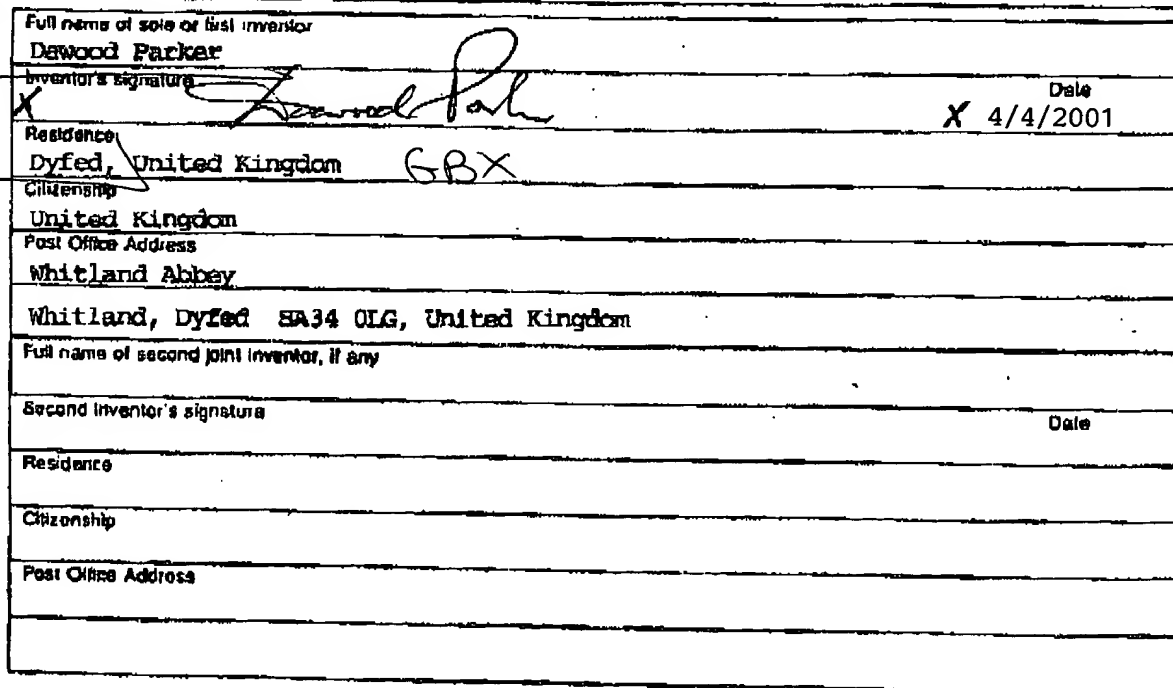 Full name of sole or first inventor
Dawood Parker
Inventor's signature
X Dawood Parker
Date
X 4/4/2001
Residence
Dyfed, United Kingdom GBX
Citizenship
United Kingdom
Post Office Address
Whitland Abbey
Whitland, Dyfed SA34 0LG, United Kingdom
Full name of second joint inventor, if any
Second inventor's signature
Date
Residence
Citizenship
Post Office Address